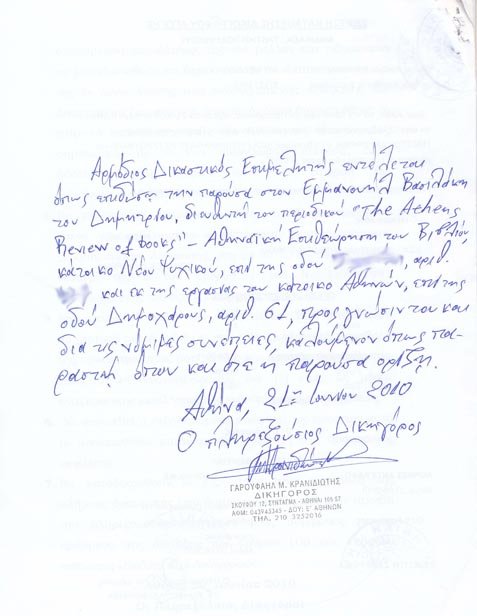 Αρμόδιος Δικαστικός Επιμελητής εντέλλεται
όπως επιδώσει την παρούσα στον Εμμανουήλ Βασιλάκη
του Δημητρίου, διευθυντή του περιοδικού "The Athens
Review of books" – Αθηναϊκή Επιθεώρηση του Βιβλίου
κάτοικο Νέου Ψυχικού, επί της οδού , αριθ.
και εκ της εργασίας του κάτοικο Αθηνών, επί της
οδού Δημοχάρους, αριθ. 61, προς γνώσιν του και
δια τις νόμιμες συνέπειες, καλούμενον όπως πα-
ραστή όπου και ότε η παρούσα ορίζει.
Αθήνα, 21 Ιουνίου 2010
Ο πληρεξούσιος Δικηγόρος
ΓΑΡΟΥΦΑΗΛ Μ. ΚΡΑΝΙΔΙΩΤΗΣ
ΔΙΚΗΓΟΡΟΣ
ΣΚΟΥΦΟΥ 12, ΣΥΝΤΑΓΜΑ - ΑΘΗΝΑ 105 57
ΑΦΜ: 043945345 - ΔΟΥ: Ε' ΑΘΗΝΩΝ
ΤΗΛ. 210 3252016